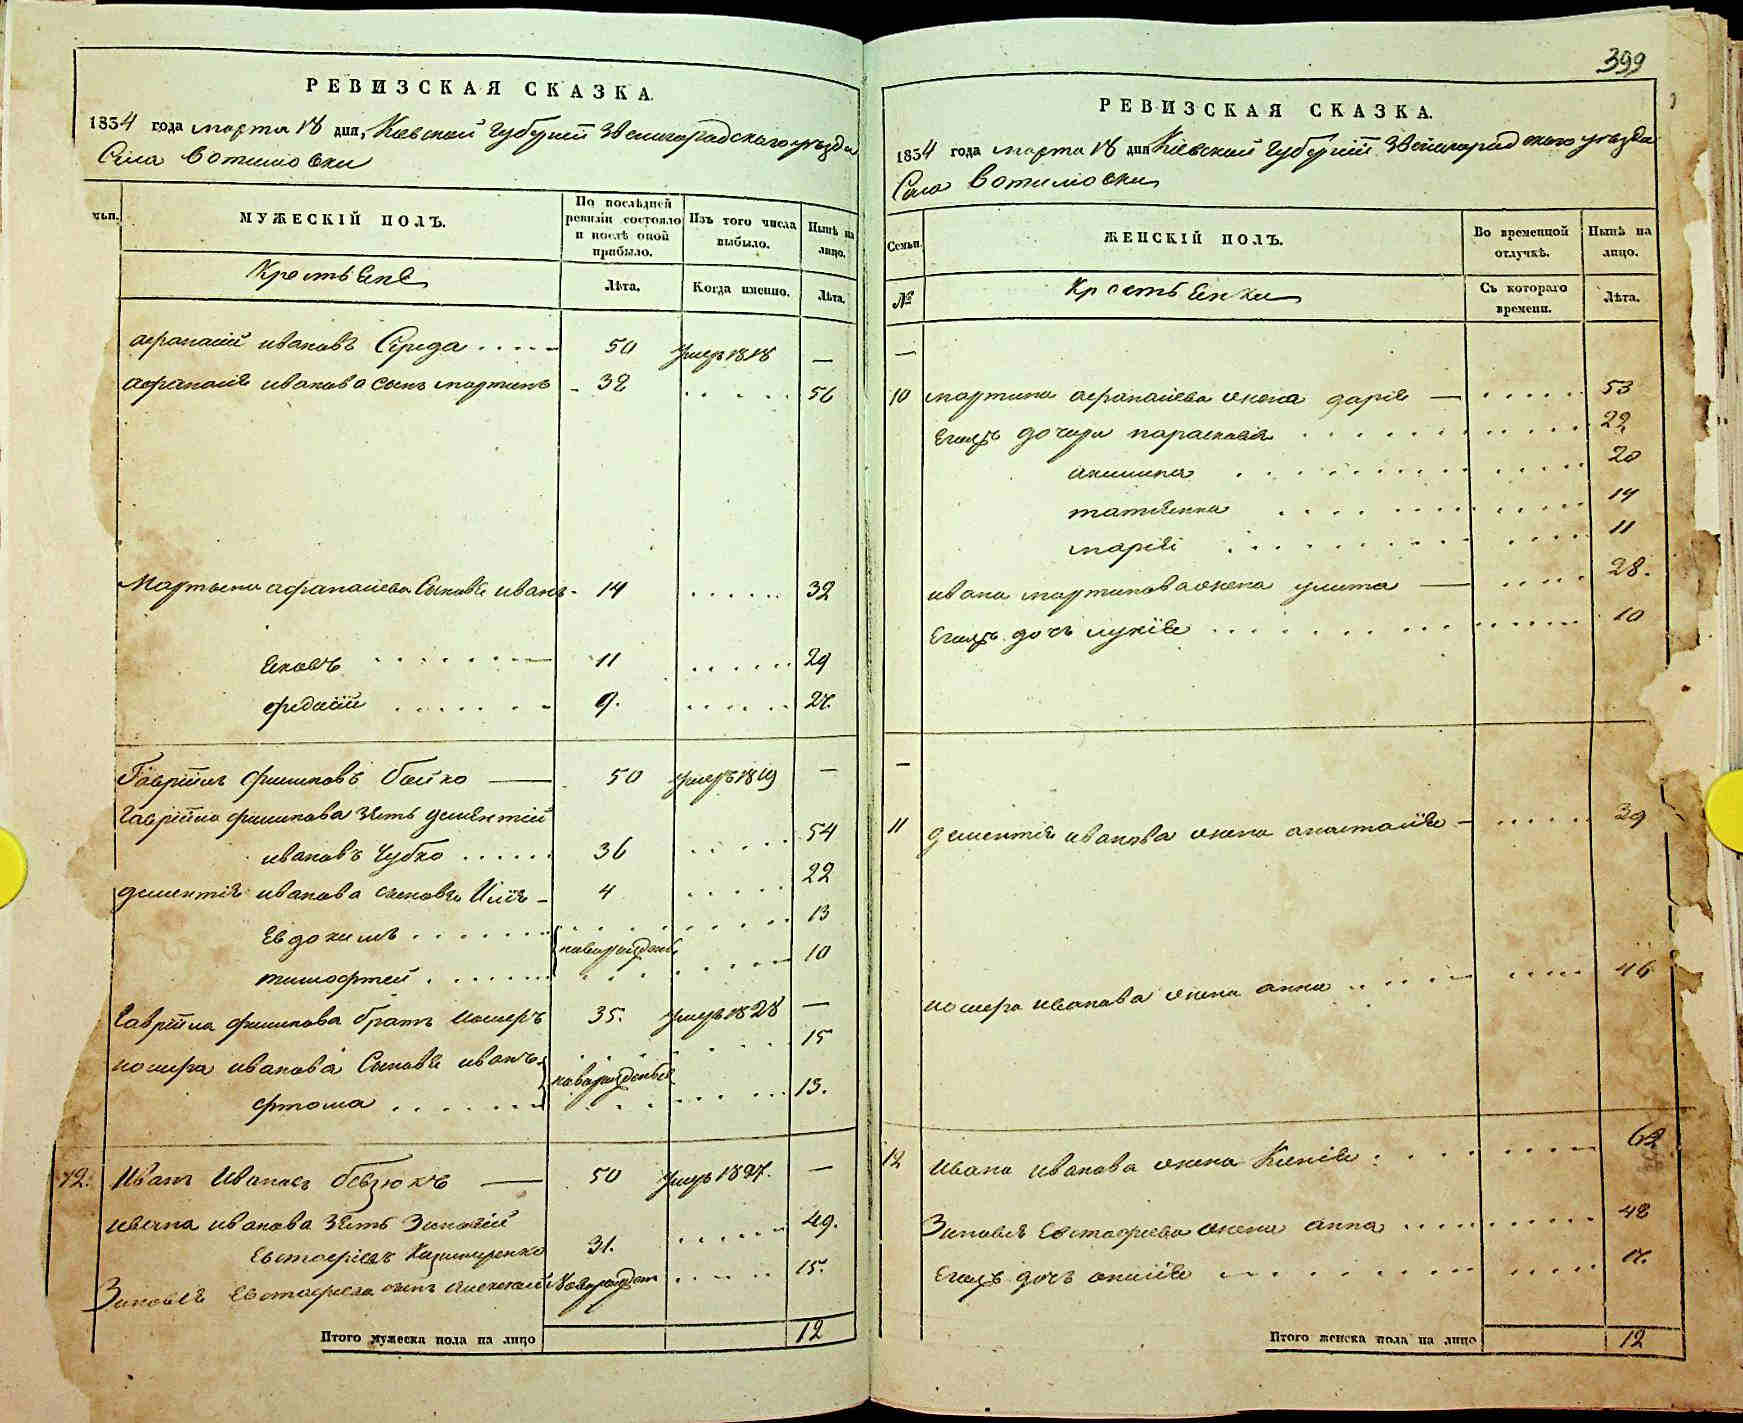 399
РЕВИЗСКАЯ СКАЗКА.
1834 года марта 18 дня, Киевской Губерніи Звенигородскаго уѣзда
Села Вотилювки
мьи.
МУЖЕСКІЙ ПОЛЪ.
По послѣдней ревизіи состояло и послѣ оной прибыло.
Изъ того числа выбыло.
Нынѣ на лицо.
Крестьяне
Лѣта.
Когда именно.
Лѣта.
Афанасій Ивановъ Середа 50 умеръ 1818 —
Афанасія Иванова сынъ Мартинъ 38 56
Мартына Афанасіева сыновья Иванъ 14 32
Яковъ 11 29
Федосій 9. 27.
Гаврійлъ Филиповъ Бойко — 50 умеръ 1819 —
Гаврійла Филипова зять Дементій
Ивановъ Чубко 36 54
Дементія Иванова сыновья Илія 4 22
Евдокимъ новорожденны 13
Тимофтей 10
Гаврійла Филипова братъ 35. умеръ 1828 —
Иванова сыновья Иванъ новорожденные 15
Фтома 13.
12. Иванъ Ивановъ Бевзюкъ — 50 умеръ 1827. —
Ивана Иванова зять Зиновій
Евстафіевъ Казимиренко 31. 49.
Зиновія Евстафіева сынъ Алексей новорожден 15.
Итого мужеска пола на лицо 12
РЕВИЗСКАЯ СКАЗКА.
1834 года марта 18 дня Кіевской Губерніи Звенигородскаго уѣзда
Села Вотилювки
Семьи.
ЖЕНСКІЙ ПОЛЪ.
Во временной отлучкѣ.
Нынѣ на лицо.
№
Крестьянки
Съ котораго времени.
Лѣта.
—
10 Мартина Афанасіева жена Дарія — 53
Егожъ дочери Параскевія 22
Акилина 20
Татіянна 14
Марія 11
Ивана Мартинова жена Улита — 28.
Егожъ дочъ Лукія 10
—
11 Дементія Иванова жена Анастасія 39
Иванова жена Анна 46
12 Ивана Иванова жена Ксенія
Зиновія Евстафіева жена Анна 48
Егожъ дочъ 17.
Итого женска пола на лицо 12